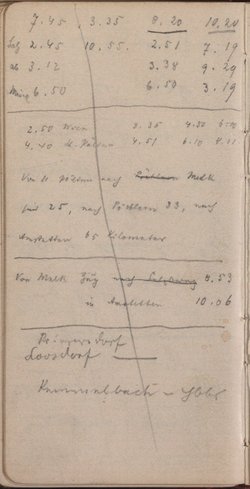 7.45 3.35 8.20 10.20
Salz 2.45 10.55. 2.51 7.19
ab 3.12 3.38 9.29
Münch 6.50 6.50 3.19
2.50 Wien 8.35 4.50
4.40 St. Pölten 4.51 6.10 8.11
Von St. Pölten nach Pöchlarn Melk
sind 25, nach Pöchlarn 33, nach
Amstetten 65 Kilometer
Von Melk Zug nach Salzburg 8.53
in Amstetten 10.06
Loosdorf
Kemmelbach - Ybbs